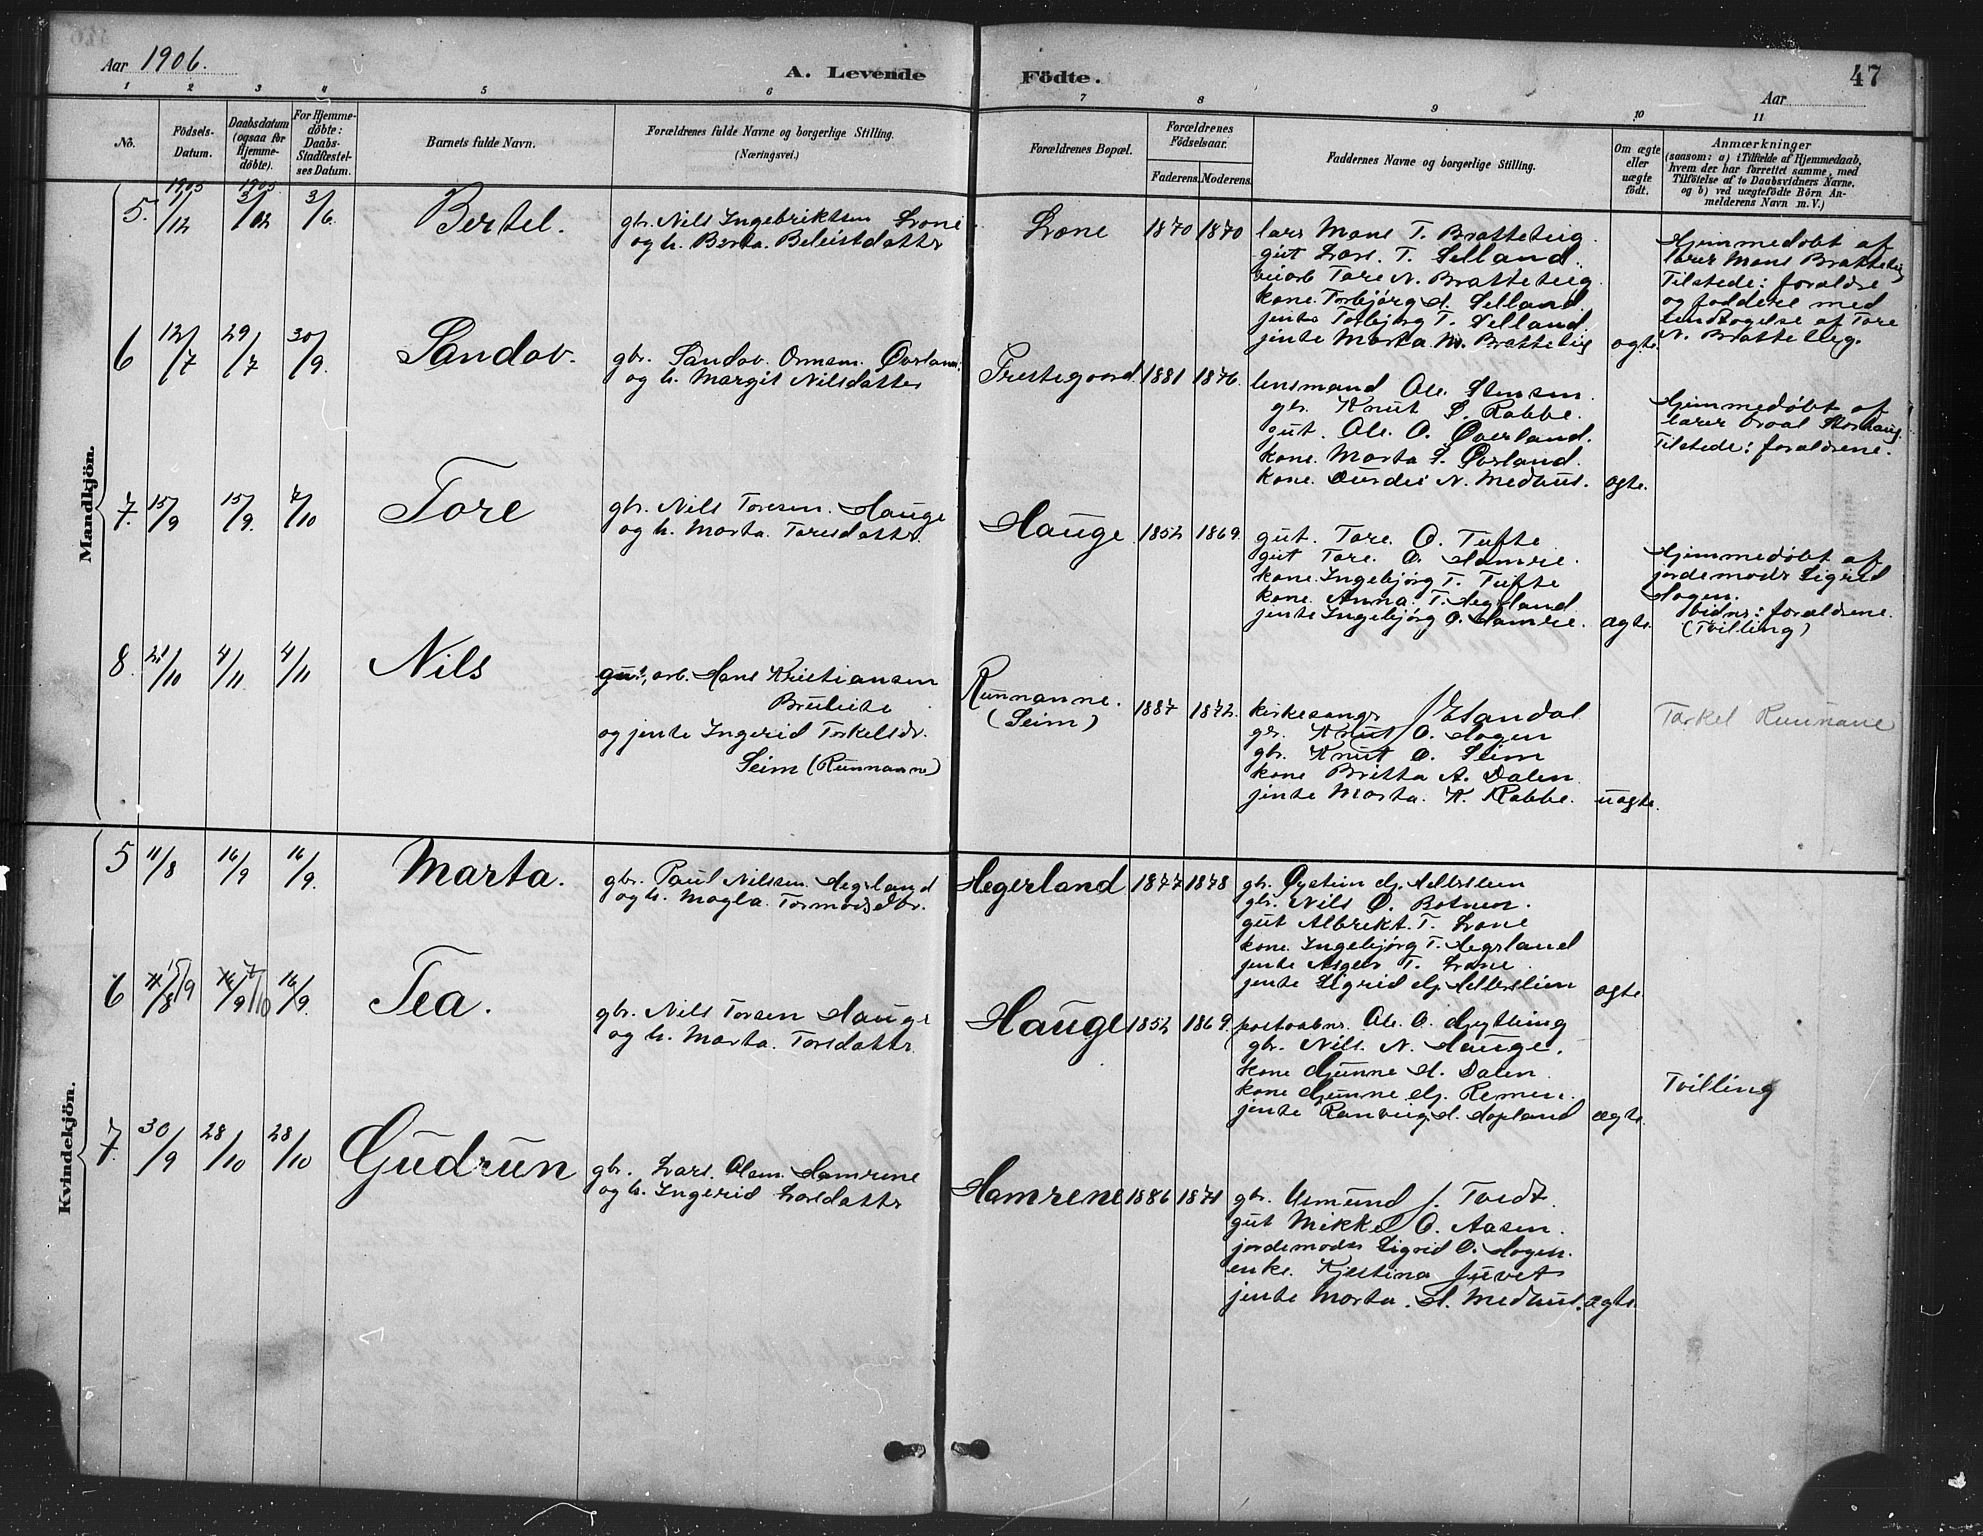 Aar 1906.
A. Levende Födte.
47
Aar
1 2 3 4 5 6 7 8 9 10 11
No.
Födsels-Datum.
Daabsdatum (ogsaa for Hjemme-döbte).
For Hjemme-döbte: Daabs-Stadfæstel-ses Datum.
Barnets fulde Navn.
Forældrenes fulde Navne og borgerlige Stilling.
(Næringsvei.)
Forældrenes Bopæl.
Forældrenes Födselsaar.
Faderens. Moderens.
Faddernes Navne og borgerlige Stilling.
Om ægte eller uægte födt.
Anmærkninger
(saasom: a) i Tilfælde af Hjemmedaab,
hvem der har forrettet samme, med
Tilföielse af to Daabsvidners Navne,
og b) ved uægtefödte Börn An-
melderens Navn m. V.)
Mandkjön.
5. 1905 1/12 1905 3/12 3/6. Bertel.
gbr. Nils Ingebriktsen Lone
og h. Berta
Lone 1870 1870
lærer Mons T. Bratteteig
gut Lars T. Selland.
Tore N. Bratteteig
kone Torbjørg H. Selland
jente Torbjørg T. Selland.
jente Marta M. Bratteteig ægte.
Hjemmedøbt af
lærer Mons Bratteteig
Tilstede: forældre
og faddere med
undtagelse af Tore
N. Bratteteig.
6 12/7 29/7 30/9. Sandov.
gbr. Sandov Ormsen Øvrland.
og h. Margit Nilsdatter
Prestegaard. 1881 1876.
lensmand Ole Stensen
gbr. Knut S. Rabbe.
gut. Ole O. Øverland.
kone Marta S. Øvrland.
kone Durdei N. Medhus. ægte.
Hjemmedøbt af
lærer Storhaug
Tilstede: forældrene.
7. 15/9 15/9. 7/10 Tore
gbr. Nils Toresen Hauge
og h. Marta Toresdattr.
Hauge 1852 1869.
gut. Tore O. Tufte
gut Tore O. Hamre.
kone Ingebjørg T. Tufte
kone Anna T. Hegrland
jente Ingebjørg O. Hamre. ægte.
Hjemmedøbt af
jordemodr Sigrid
Hagen.
Vidnr: forældrene.
(Tvilling)
8. 21/10 4/11 4/11 Nils
arb. Hans Kristiansen
Bruleite
og jente Ingerid Torkelsdr.
Seim (Runnanne)
Runnanne.
(Seim) 1887 1872.
kirkesangr Handal
gbr. Knut O. Hagen
gbr. Knut O. Seim
kone Britta A. Dalen.
jente Marta K. Rabbe. uægte.
Torkel Runnane
Kvindekjön.
5 11/8 16/9 16/9. Marta.
gbr. Paul Nilssen Hegrland
og h. Magla Tormodsdtr.
Hegerland 1877 1878
gbr. Øystein Gj. Hellesleim
gbr. Nils O. Botnen.
gut Albrekt T. Lone
kone Ingebjørg T. Hegrland
jente T. Lone
jente Sigrid Gj. Helleslim ægte
6 15/9 7/10 16/9. Tea.
gbr. Nils Torsen Hauge
og h. Marta Torsdattr
Hauge 1852 1869.
postaabnr. Ole O. Gytling
gbr. Nils N. Hauge.
kone Gunne H. Dalen
kone Gunne Gj. Remen.
jente Ranveig H. Hopland ægte
Tvilling
7. 30/9 28/10 28/10 Gudrun
gbr. Lars Olsen Hamrene
og h. Ingerid Larsdattr
Hamrene 1886 1871
gbr. Asmund J. Tvedt.
gut Mikkel O. Aasen.
jordemoder Sigrid O. Hagen.
enke. Kjestina Juvet
jente Marta H. Medhus. ægte